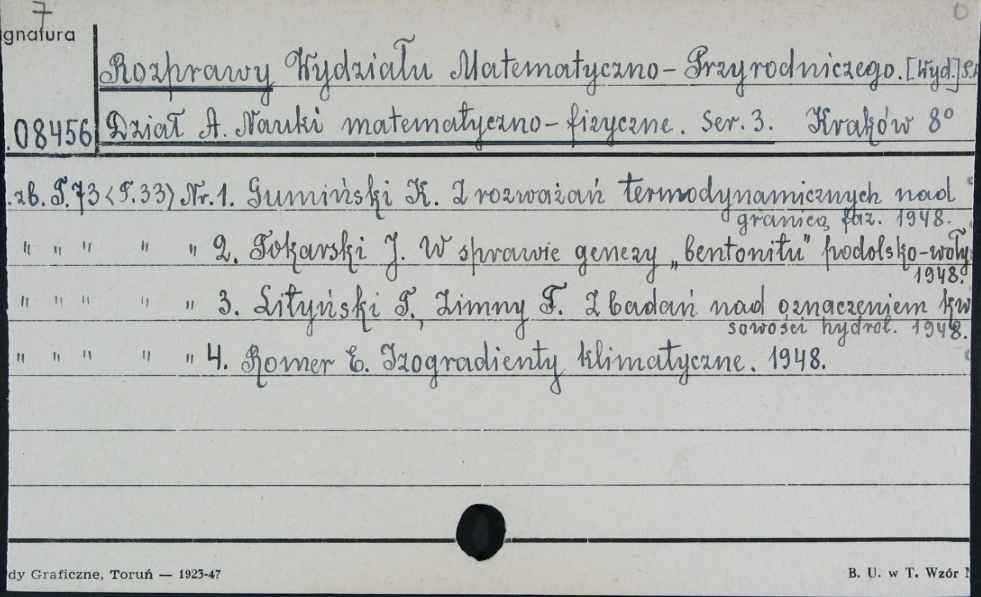 7
gnatura
Rozprawy Wydziału Matematyczno-Przyrodniczego. [Wyd.]
08456 Dział A. Nauki matematyczno-fizyczne. Ser. 3. Kraków 8°
zb. T.73 <T.33> Nr.1. Gumiński K. Z rozważań termodynamicznych nad
granicą faz. 1948.
" " " " " 2. Tokarski J. W sprawie genezy „bentonitu" podolsko-woły
1948.
" " " " " 3. Lityński T., Zimny F. Z badań nad oznaczeniem kw
sowości hydrol. 1948.
" " " " " 4. Romer E. Izogradienty klimatyczne. 1948.
dy Graficzne, Toruń — 1923-47 B. U. w T. Wzór